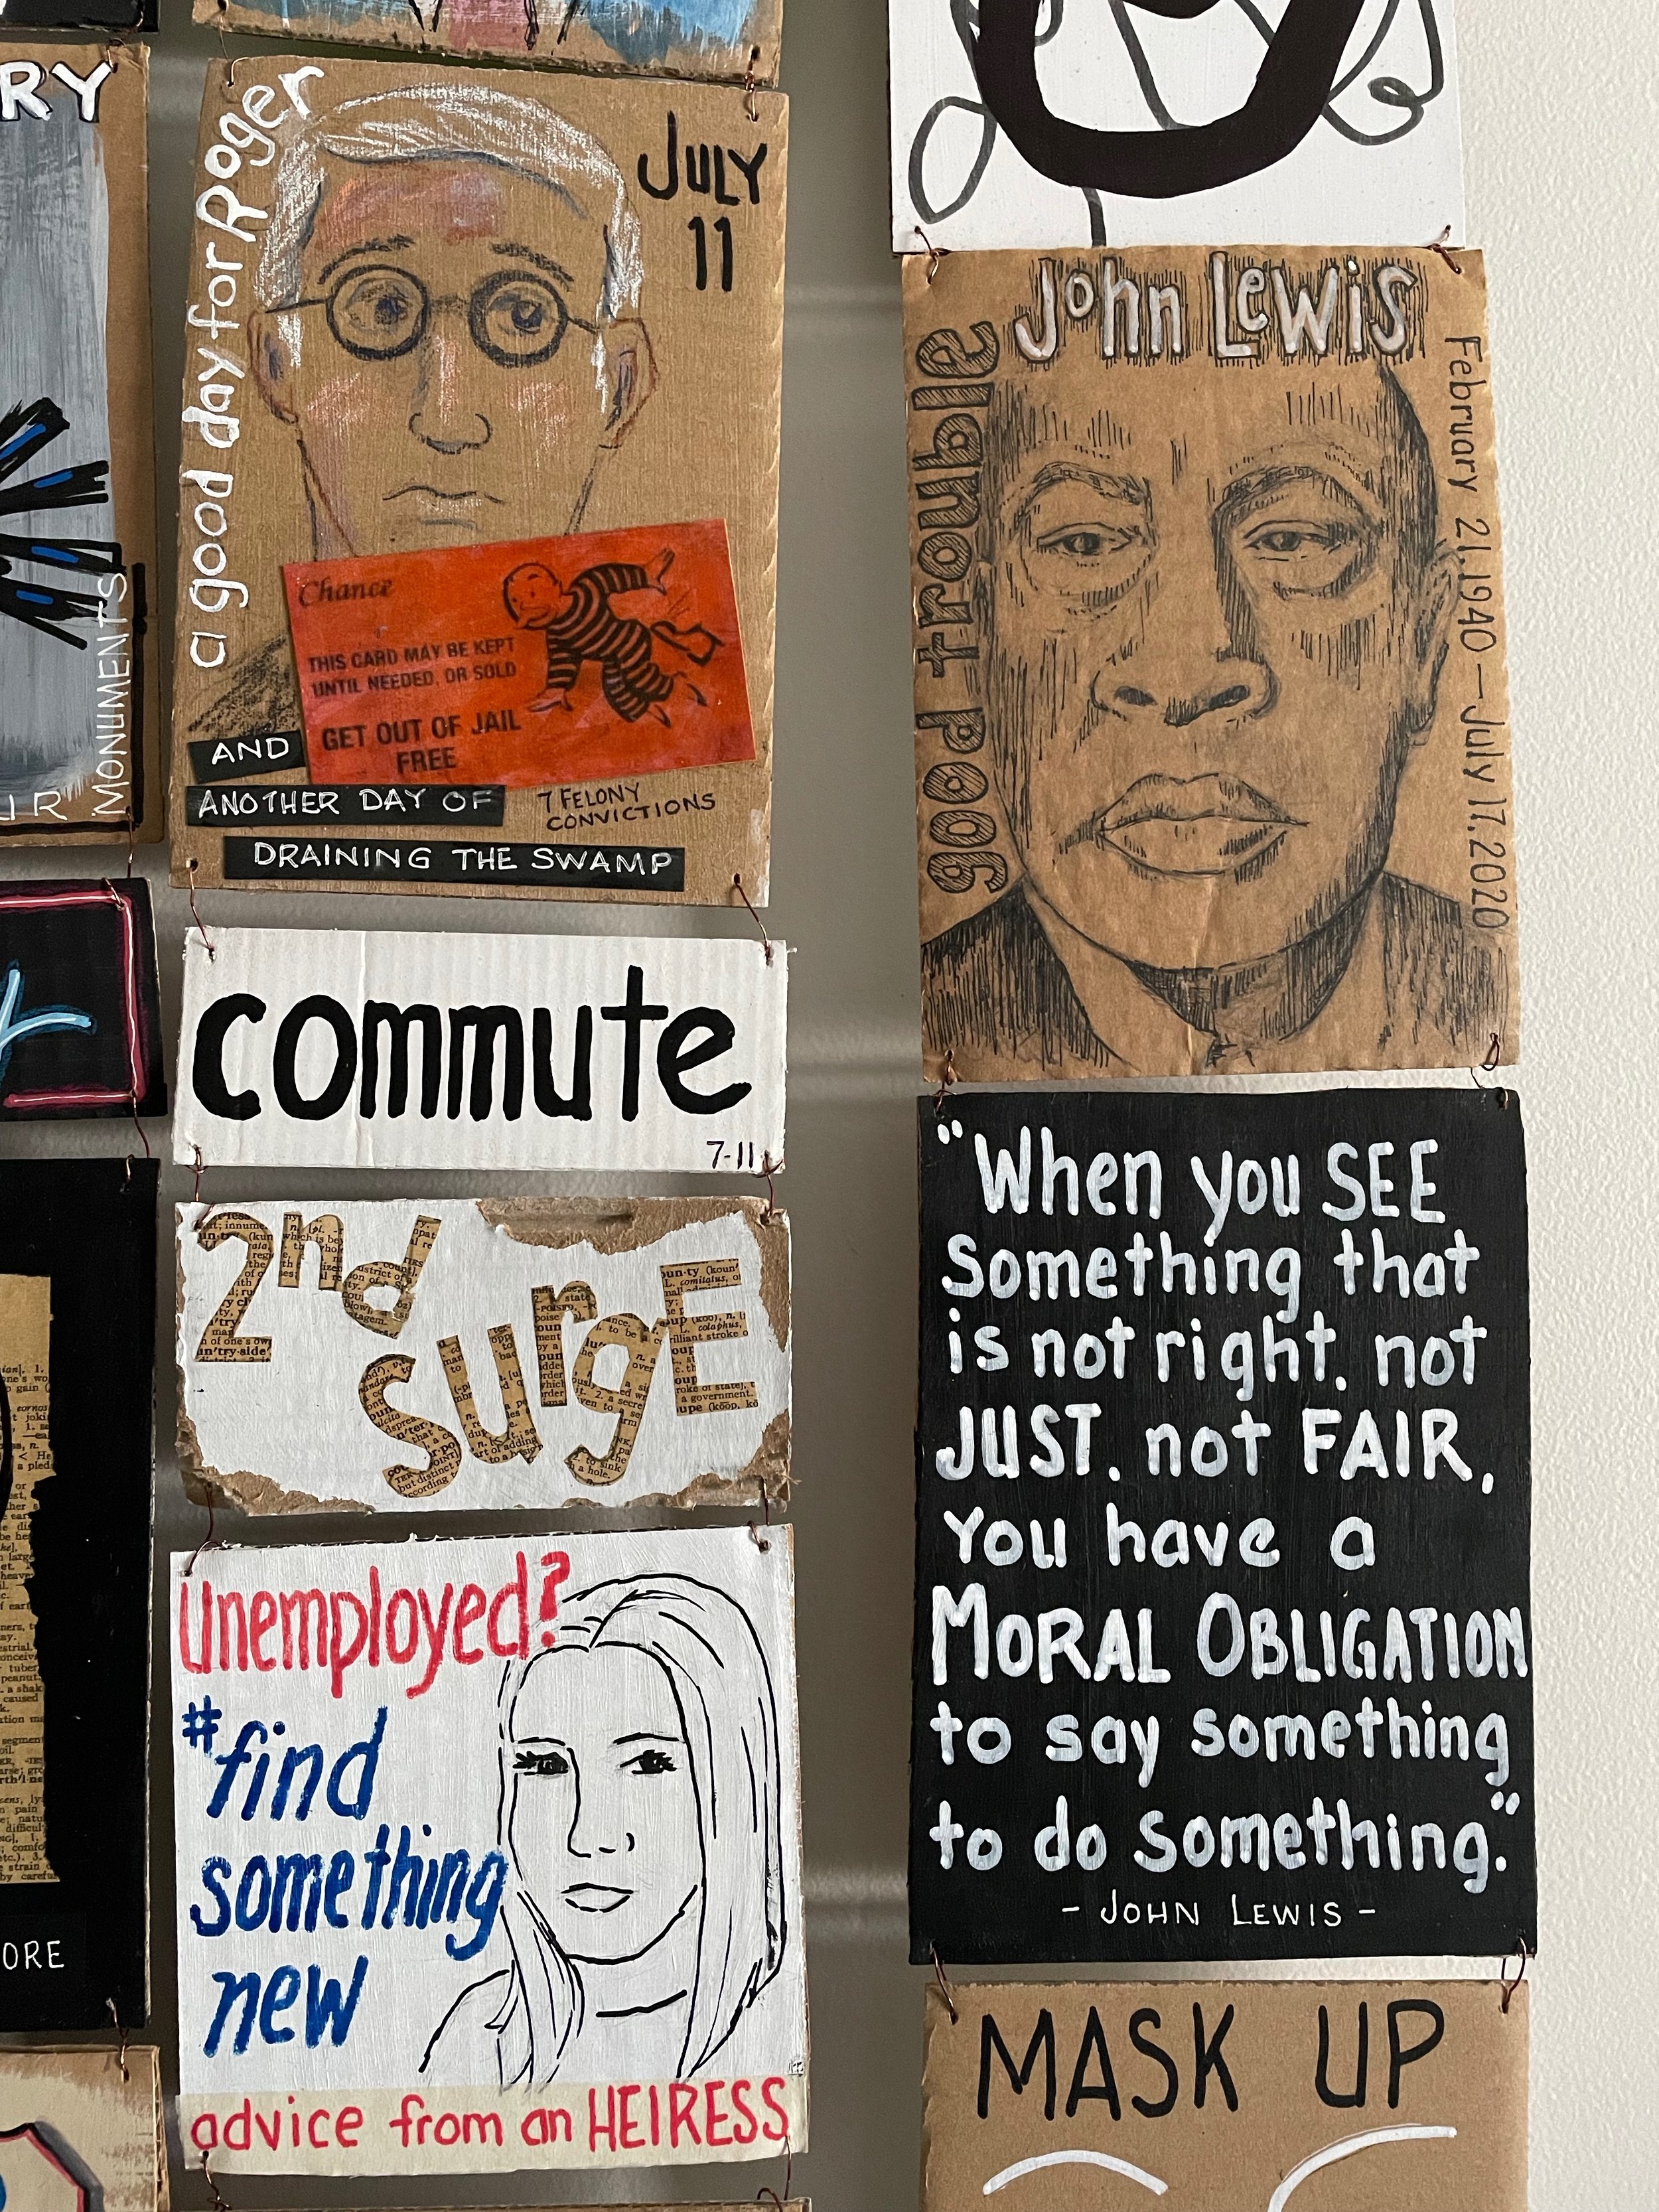 RY
MONUMENTS
UR
ORE
a good day for Roger
JULY
11
Chance
THIS CARD MAY BE KEPT
UNTIL NEEDED, OR SOLD
GET OUT OF JAIL
FREE
AND
ANOTHER DAY OF
7 FELONY
CONVICTIONS
DRAINING THE SWAMP
commute
7-11
2nd
surgE
unemployed?
#find
something
new
advice from an HEIRESS
John Lewis
good trouble
February 21.1940 — July 17.2020
"When you SEE
something that
is not right, not
JUST, not FAIR,
you have a
MORAL OBLIGATION
to say something
to do something."
- JOHN LEWIS -
MASK UP